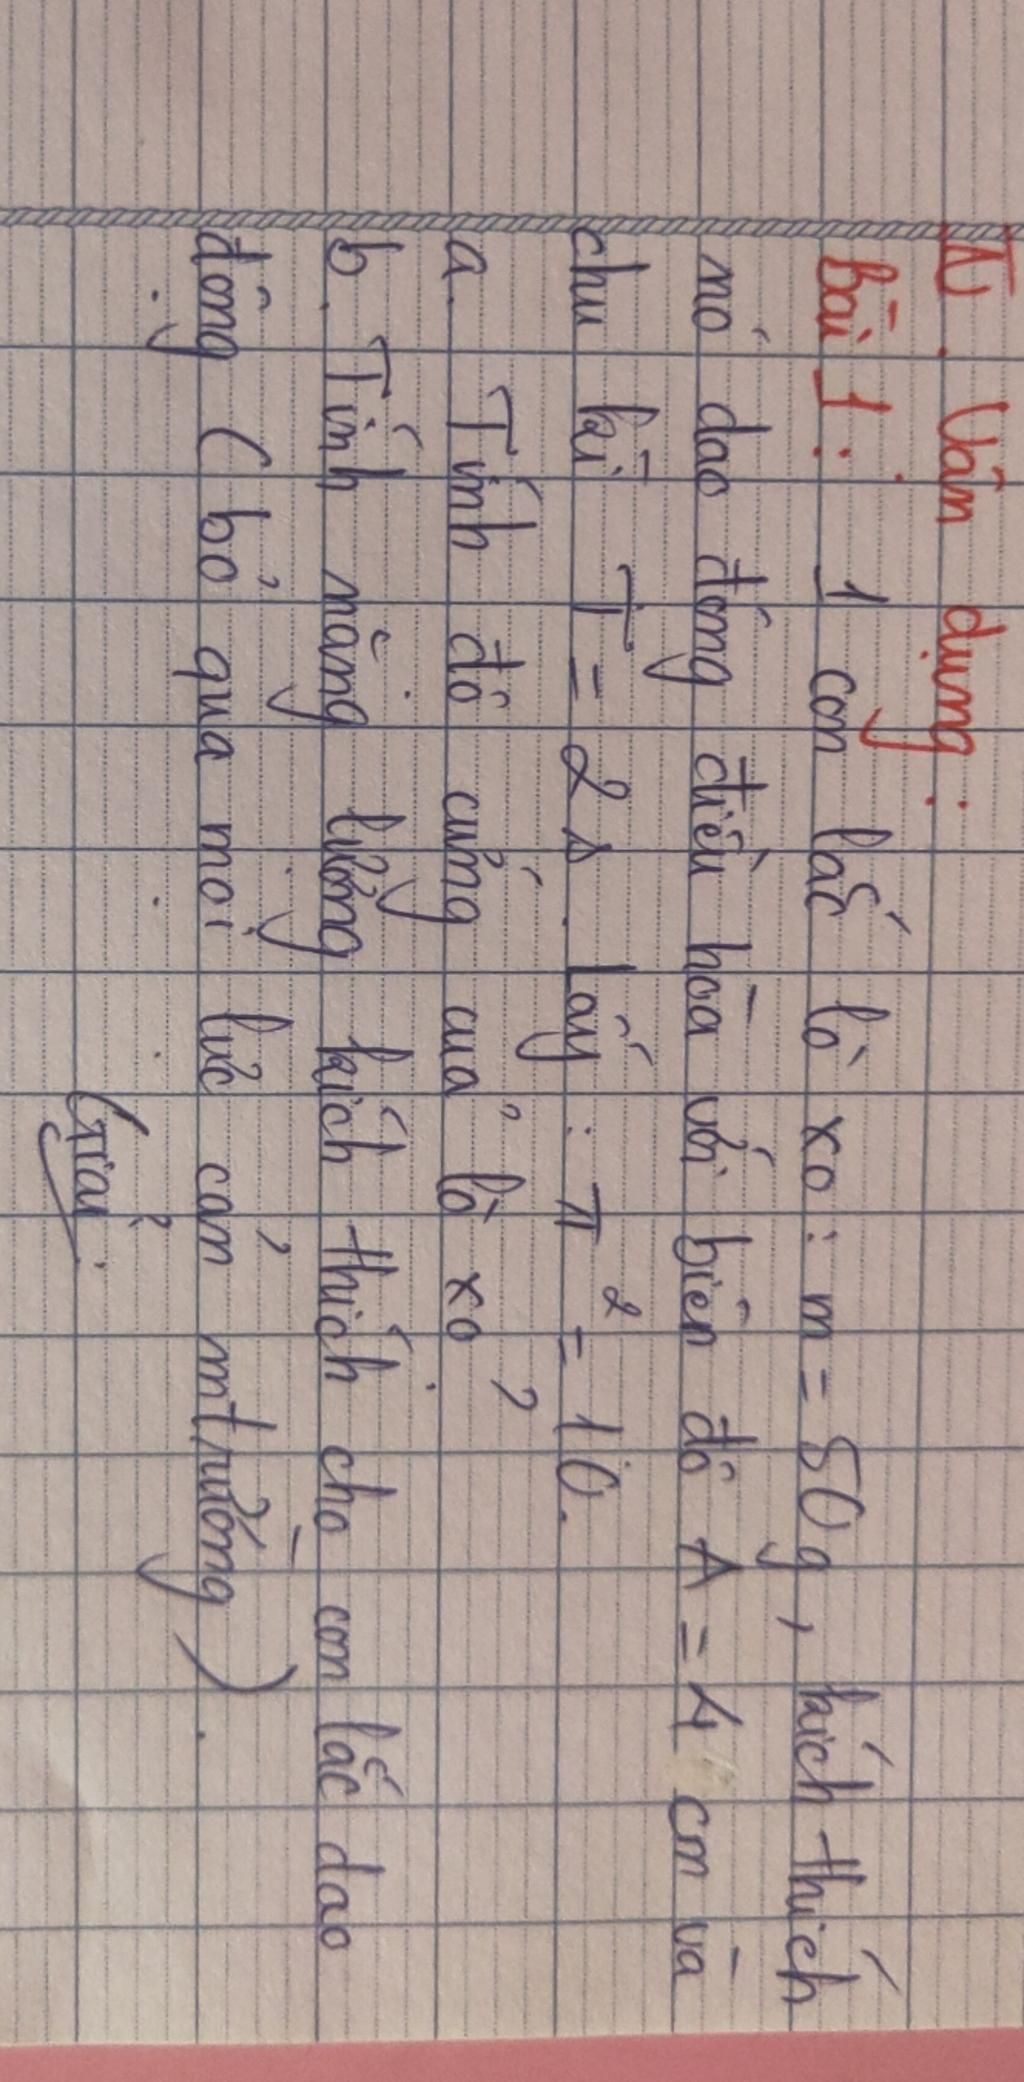 IV. Vận dụng :
Bài 1 : 1 con lắc lò xo : m = 50g, kích thích
nó dao động điều hòa với biên độ A = 4 cm và
chu kì T = 2s. Lấy : π² = 10.
a. Tính độ cứng của lò xo ?
b. Tính năng lượng kích thích cho con lắc dao
động ( bỏ qua mọi lực cản mtrường ) .
Giải :